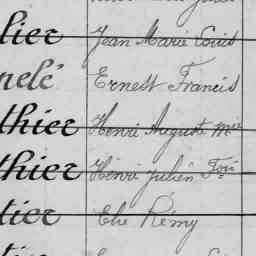 lier Jean Marie Louis
nelé Ernest Francis
thier Henri Auguste Mie
thier Henri Julien Foi
tier Elie Rémy